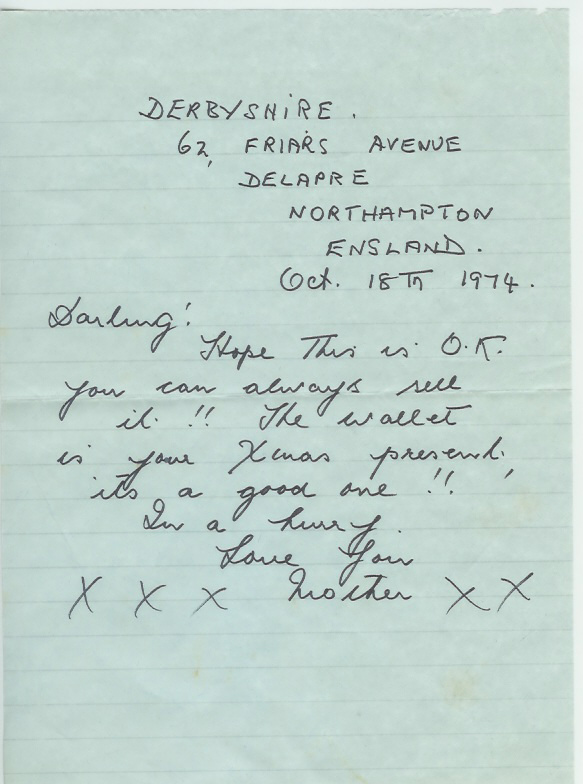 DERBYSHIRE.
62, FRIARS AVENUE
DELAPRE
NORTHAMPTON
ENGLAND.
Oct. 18TH 1974.
Darling!
Hope This is O.K.
you can always sell
it. !! The wallet
is your Xmas present.
its a good one !!
In a hurry.
Love You
X X X Mother X X